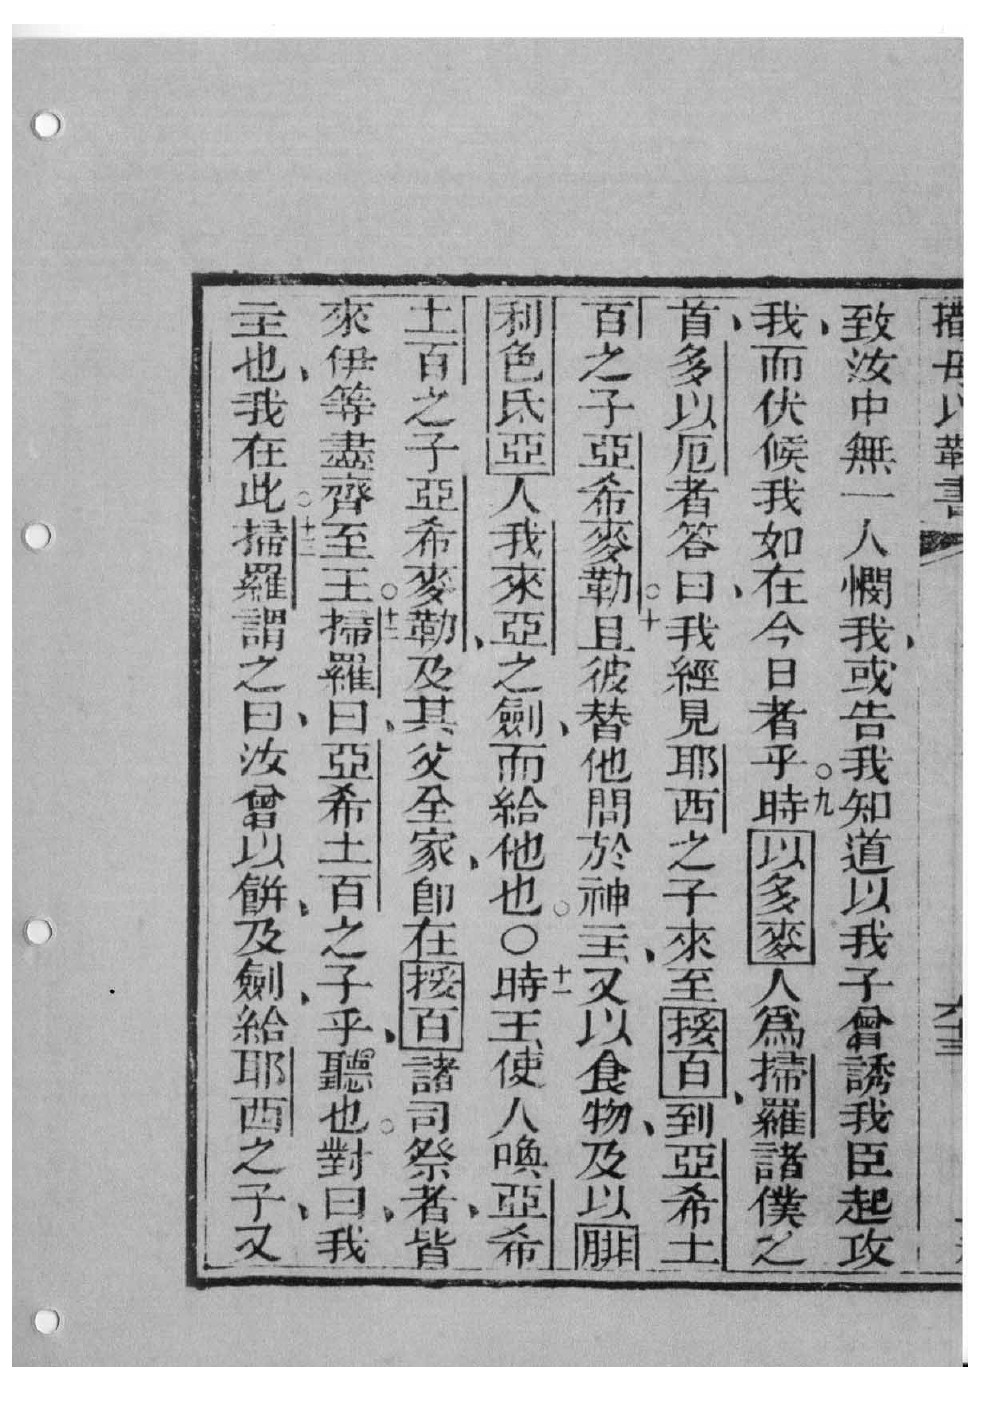 撒母以勒書
致汝中無一人憫我、或告我知道以我子曾誘我臣起攻
我、而伏候我如在今日者乎。九時以多麥人為掃羅諸僕之
首、多以厄者答曰、我經見耶西之子來至挼百、到亞希土
百之子亞希麥勒。十且彼替他問於神主、又以食物、及以腓
利色氐亞人我來亞之劍、而給他也。○十一時王使人喚亞希
土百之子亞希麥勒、及其父全家、卽在挼百諸司祭者、皆
來、伊等盡齊至王。十二掃羅曰、亞希土百之子乎、聽也。對曰、我
主也、我在此。十三掃羅謂之曰、汝曾以餅、及劍、給耶西之子、又